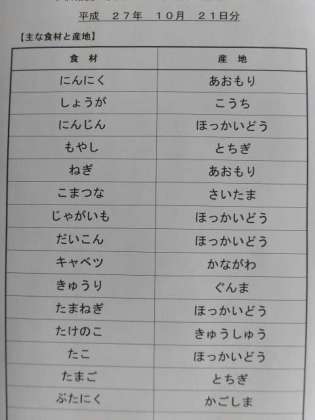 平成　２７年　１０月　２１日分
【主な食材と産地】
食　材　産　地
にんにく　あおもり
しょうが　こうち
にんじん　ほっかいどう
もやし　とちぎ
ねぎ　あおもり
こまつな　さいたま
じゃがいも　ほっかいどう
だいこん　ほっかいどう
キャベツ　かながわ
きゅうり　ぐんま
たまねぎ　ほっかいどう
たけのこ　きゅうしゅう
たこ　ほっかいどう
たまご　とちぎ
ぶたにく　かごしま